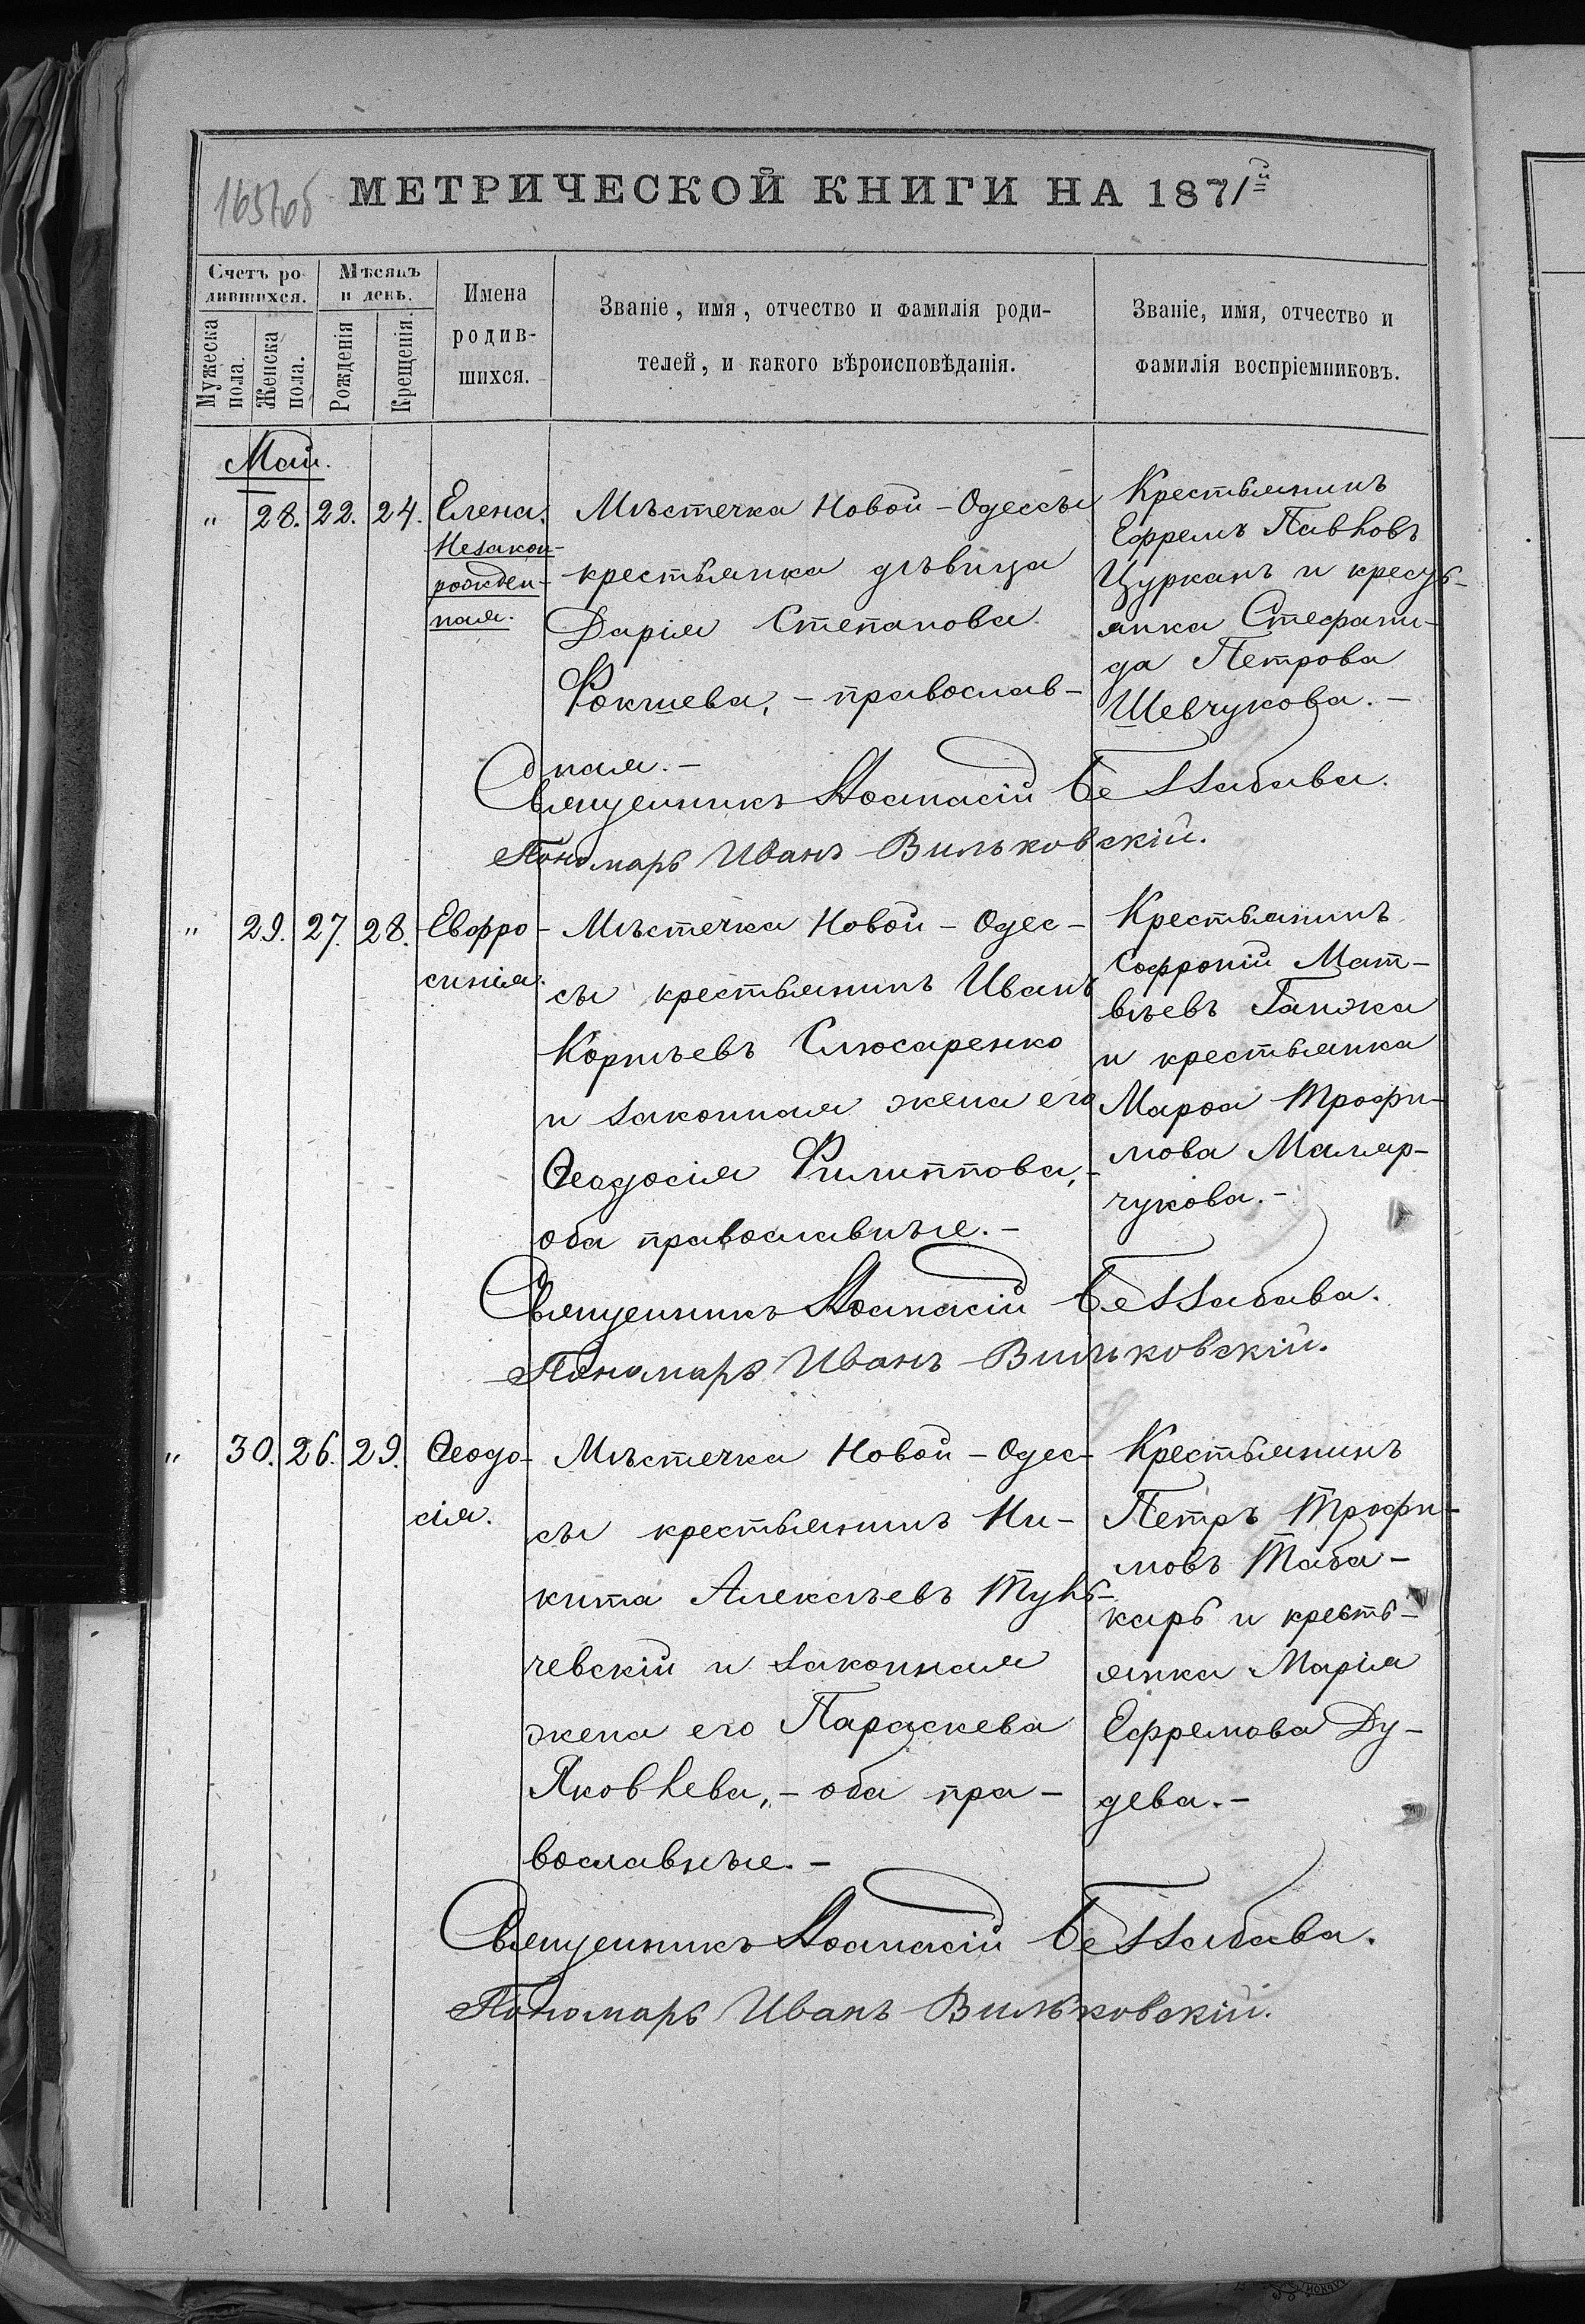 1657об
МЕТРИЧЕСКОЙ КНИГИ НА 1871й
Счетъ ро-
дившихся.
Мѣсяцъ
и день.
Мужеска
пола.
Женска
пола.
Рожденія
Крещенія.
Имена
родив-
шихся.
Званіе, имя, отчество и фамилія роди-
телей, и какого вѣроисповѣданія.
Званіе, имя, отчество и
фамилія воспріемниковъ.
Май.
" 28. 22. 24.
Елена.
Незакон-
рожден-
ная.
Мѣстечка Новой-Одессы
крестьянка дѣвица
Дарія Степанова
Фокшева, - православ-
ная. -
Крестьянинъ
Ефремъ Павловъ
Цурканъ и кресть-
янка Стефани-
да Петрова
Шевчукова. -
Священникъ Аѳанасій Беззабава.
Пономарь Иванъ Вильковскій.
" 29. 27. 28.
Евфро-
синія.
Мѣстечка Новой-Одес-
сы крестьянинъ Иванъ
Корнѣевъ Слюсаренко
и законная жена его
Ѳеодосія Филиппова, -
оба православные. -
Крестьянинъ
Софроній Мат-
вѣевъ Ганжа
и крестьянка
Марѳа Трофи-
мова Маляр-
чукова. -
Священникъ Аѳанасій Беззабава.
Пономарь Иванъ Вильковскій.
" 30. 26. 29.
Ѳеодо-
сія.
Мѣстечка Новой-Одес-
сы крестьянинъ Ни-
кита Алексѣевъ Туль-
чевскій и законная
жена его Параскева
Яковлева, - оба пра-
вославные. -
Крестьянинъ
Петръ Трофи-
мовъ Таба-
каръ и кресть-
янка Марія
Ефремова Ду-
дева. -
Священникъ Аѳанасій Беззабава.
Пономарь Иванъ Вильковскій.